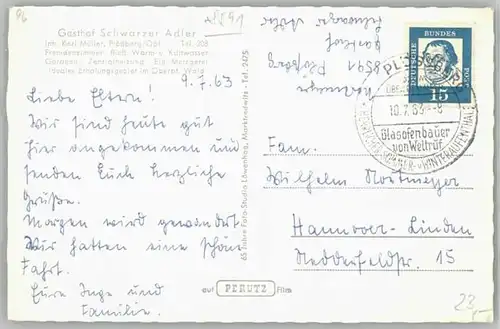 Gasthof Schwarzer Adler
Inh. Karl Müller, Plößberg/Opf. Tel. 208
Fremdenzimmer, fließ. Warm- u. Kaltwasser
Garagen, Zentralheizung, Eig. Metzgerei
Idealer Erholungsort im Oberpf. Wald
8591
9.7.63
Liebe Eltern!
Wir sind heute gut
hier angekommen und
senden Euch herzliche
Grüße.
Morgen wird gewandert.
Wir hatten eine schöne
Fahrt.
Eure Inge und
Familie.
65 Jahre Foto-Studio Löwenhag, Marktredwitz - Tel. 2475
8591 Plößberg
Gasthof
Schwarzer Adler
DEUTSCHE
BUNDES
POST
15
10.7.63-8
Glasofenbauer
von Weltruf
Fam.
Wilhelm Nortmeyer
Hannover-Linden
Nedderfeldstr. 15
auf PERUTZ Film
23,-